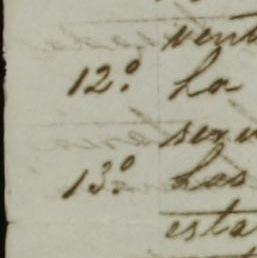 vent
12.º La
seru
13.º Las
esta